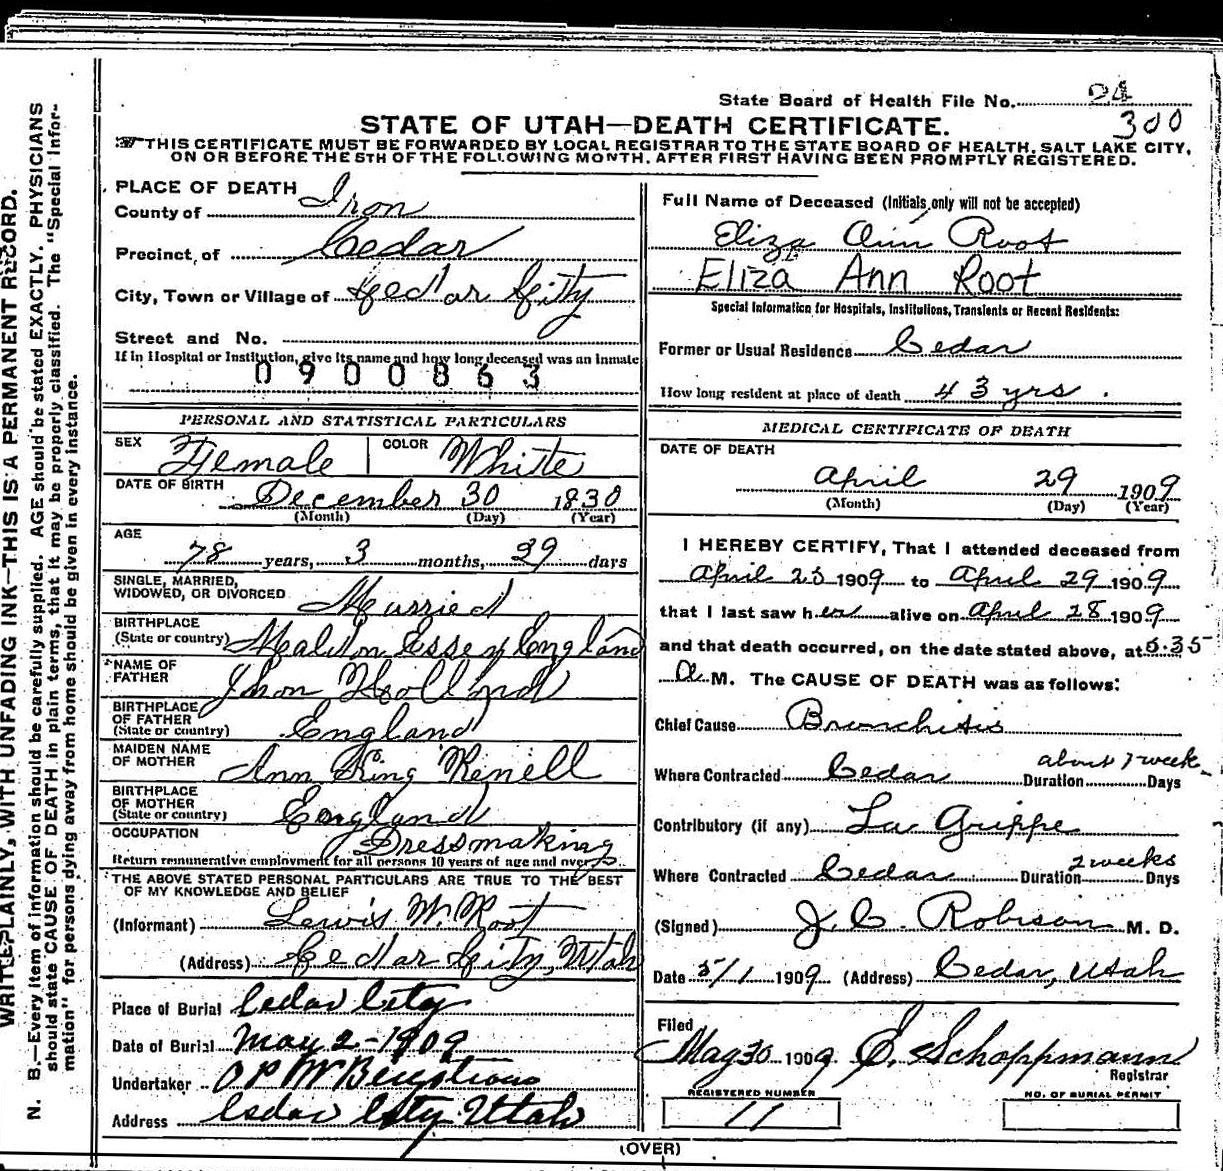 State Board of Health File No. 24
300
STATE OF UTAH—DEATH CERTIFICATE.
THIS CERTIFICATE MUST BE FORWARDED BY LOCAL REGISTRAR TO THE STATE BOARD OF HEALTH, SALT LAKE CITY,
ON OR BEFORE THE 5TH OF THE FOLLOWING MONTH, AFTER FIRST HAVING BEEN PROMPTLY REGISTERED.
WRITE PLAINLY, WITH UNFADING INK—THIS IS A PERMANENT RECORD.
N. B.—Every item of information should be carefully supplied. AGE should be stated EXACTLY. PHYSICIANS
should state CAUSE OF DEATH in plain terms, that it may be properly classified. The "Special Infor-
mation" for persons dying away from home should be given in every instance.
PLACE OF DEATH
County of Iron
Precinct of Cedar
City, Town or Village of Cedar City
Street and No.
If in Hospital or Institution, give its name and how long deceased was an inmate
0900863
PERSONAL AND STATISTICAL PARTICULARS
SEX Female COLOR White
DATE OF BIRTH December 30 1830
(Month) (Day) (Year)
AGE
78 years, 3 months, 29 days
SINGLE, MARRIED,
WIDOWED, OR DIVORCED Married
BIRTHPLACE
(State or country) Maldon Essex England
NAME OF
FATHER Jhon Holland
BIRTHPLACE
OF FATHER
(State or country) England
MAIDEN NAME
OF MOTHER Ann King Kenell
BIRTHPLACE
OF MOTHER
(State or country) England
OCCUPATION Dressmaking
Return remunerative employment for all persons 10 years of age and over
THE ABOVE STATED PERSONAL PARTICULARS ARE TRUE TO THE BEST
OF MY KNOWLEDGE AND BELIEF
(Informant) Lewis W. Root
(Address) Cedar City, Utah
Place of Burial Cedar City
Date of Burial May 2-1909
Undertaker
Address Cedar City Utah
Full Name of Deceased (Initials only will not be accepted)
Eliza Ann Root
Eliza Ann Root
Special Information for Hospitals, Institutions, Transients or Recent Residents:
Former or Usual Residence Cedar
How long resident at place of death 43 yrs.
MEDICAL CERTIFICATE OF DEATH
DATE OF DEATH
April 29 1909
(Month) (Day) (Year)
I HEREBY CERTIFY, That I attended deceased from
April 25 1909 to April 29 1909
that I last saw her alive on April 28 1909
and that death occurred, on the date stated above, at 5:35
A. M. The CAUSE OF DEATH was as follows:
Chief Cause Bronchitis
Where Contracted Cedar Duration about 1 week Days
Contributory (if any) La Grippe
Where Contracted Cedar Duration 2 weeks Days
(Signed) J. C. Robison M. D.
Date 5/1 1909 (Address) Cedar, Utah
Filed
May 30 1909 E. Schoppmann
Registrar
REGISTERED NUMBER
11
NO. OF BURIAL PERMIT
(OVER)